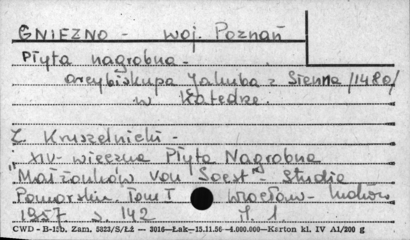 GNIEZNO - woj. Poznań
Płyta nagrobna -
arcybiskupa Jakuba z Sienna /1480/
w Katedrze.
Z. Kruszelnicki -
"XIV-wieczna Płyta Nagrobna
Małżonków von Soest" - Studia
Pomorskie. Tom I Wrocław-Kraków
1957 s. 142 il. 1
CWD - B-15b. Zam. 5823/S/ŁŻ — 3016—Łak—15.11.56 -4.000.000—Karton kl. IV A1/200 g